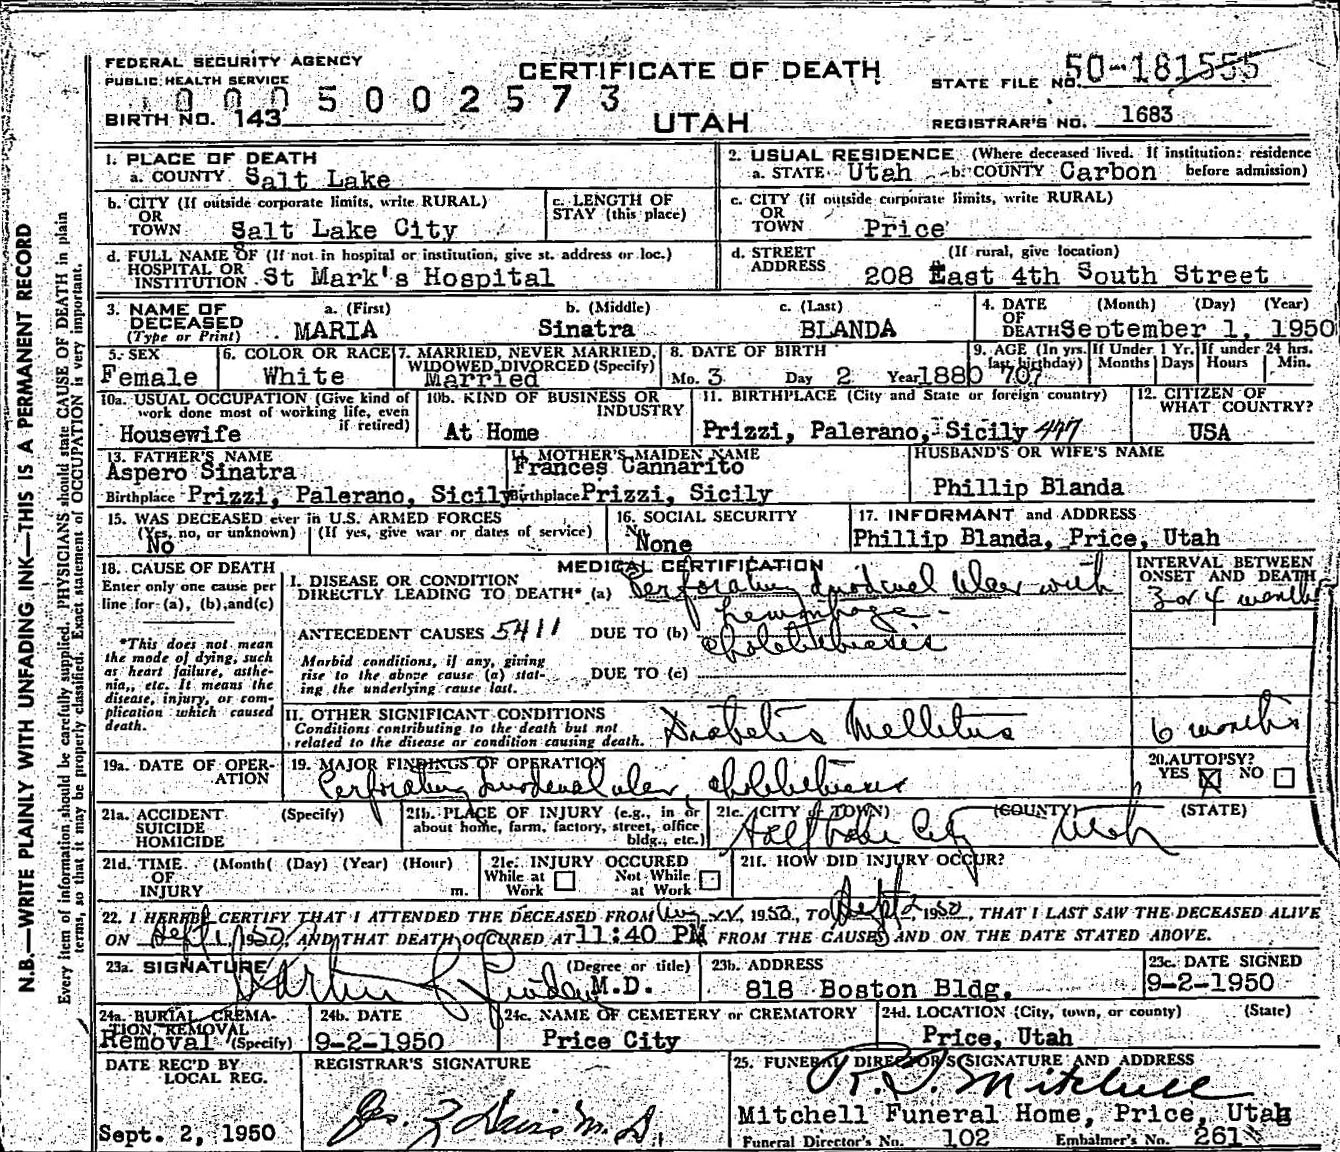 FEDERAL SECURITY AGENCY
PUBLIC HEALTH SERVICE
CERTIFICATE OF DEATH
STATE FILE NO. 50-181555
0005002573
BIRTH NO. 143
UTAH
REGISTRAR'S NO. 1683
N.B.—WRITE PLAINLY WITH UNFADING INK—THIS IS A PERMANENT RECORD
Every item of information should be carefully supplied. PHYSICIANS should state CAUSE OF DEATH in plain
terms, so that it may be properly classified. Exact statement of OCCUPATION is very important.
1. PLACE OF DEATH
a. COUNTY Salt Lake
2. USUAL RESIDENCE (Where deceased lived. If institution: residence
a. STATE Utah b. COUNTY Carbon before admission)
b. CITY (If outside corporate limits, write RURAL)
OR
TOWN Salt Lake City
c. LENGTH OF
STAY (this place)
c. CITY (if outside corporate limits, write RURAL)
OR
TOWN Price
d. FULL NAME OF (If not in hospital or institution, give st. address or loc.)
HOSPITAL OR
INSTITUTION St Mark's Hospital
d. STREET (If rural, give location)
ADDRESS 208 East 4th South Street
3. NAME OF DECEASED
(Type or Print)
a. (First) b. (Middle) c. (Last)
MARIA Sinatra BLANDA
4. DATE (Month) (Day) (Year)
OF
DEATH September 1, 1950
5. SEX
Female
6. COLOR OR RACE
White
7. MARRIED, NEVER MARRIED,
WIDOWED, DIVORCED (Specify)
Married
8. DATE OF BIRTH
Mo. 3 Day 2 Year 1880
9. AGE (In yrs. last birthday)
70
If Under 1 Yr.
Months Days
If under 24 hrs.
Hours Min.
10a. USUAL OCCUPATION (Give kind of
work done most of working life, even
if retired)
Housewife
10b. KIND OF BUSINESS OR
INDUSTRY
At Home
11. BIRTHPLACE (City and State or foreign country)
Prizzi, Palerano, Sicily 447
12. CITIZEN OF
WHAT COUNTRY?
USA
13. FATHER'S NAME
Aspero Sinatra
Birthplace Prizzi, Palerano, Sicily
14. MOTHER'S MAIDEN NAME
Frances Cannarito
Birthplace Prizzi, Sicily
HUSBAND'S OR WIFE'S NAME
Phillip Blanda
15. WAS DECEASED ever in U.S. ARMED FORCES
(Yes, no, or unknown) (If yes, give war or dates of service)
No
16. SOCIAL SECURITY
None
17. INFORMANT and ADDRESS
Phillip Blanda, Price, Utah
18. CAUSE OF DEATH
Enter only one cause per
line for (a), (b), and (c)
*This does not mean
the mode of dying, such
as heart failure, asthe-
nia, etc. It means the
disease, injury, or com-
plication which caused
death.
MEDICAL CERTIFICATION
I. DISEASE OR CONDITION
DIRECTLY LEADING TO DEATH* (a) Perforating duodenal ulcer with
hemorrhage
ANTECEDENT CAUSES 5411 DUE TO (b) cholelithiasis
Morbid conditions, if any, giving
rise to the above cause (a) stat-
ing the underlying cause last.
DUE TO (c)
II. OTHER SIGNIFICANT CONDITIONS
Conditions contributing to the death but not
related to the disease or condition causing death.
Diabetis Mellitus
INTERVAL BETWEEN
ONSET AND DEATH
3 or 4 months
6 months
19a. DATE OF OPER-
ATION
19. MAJOR FINDINGS OF OPERATION
Perforating duodenal ulcer, cholelithiasis
20. AUTOPSY?
YES ☒ NO ☐
21a. ACCIDENT (Specify)
SUICIDE
HOMICIDE
21b. PLACE OF INJURY (e.g., in or
about home, farm, factory, street, office
bldg., etc.)
21c. (CITY or TOWN) (COUNTY) (STATE)
Salt Lake City Utah
21d. TIME (Month) (Day) (Year) (Hour)
OF
INJURY m.
21e. INJURY OCCURED
While at Work ☐ Not While at Work ☐
21f. HOW DID INJURY OCCUR?
22. I HEREBY CERTIFY THAT I ATTENDED THE DECEASED FROM Aug 1950, TO Sept 1950, THAT I LAST SAW THE DECEASED ALIVE
ON Sept 1, 1950, AND THAT DEATH OCCURED AT 11:40 PM FROM THE CAUSES AND ON THE DATE STATED ABOVE.
23a. SIGNATURE (Degree or title)
M.D.
23b. ADDRESS
818 Boston Bldg.
23c. DATE SIGNED
9-2-1950
24a. BURIAL, CREMA-
TION, REMOVAL
Removal (Specify)
24b. DATE
9-2-1950
24c. NAME OF CEMETERY or CREMATORY
Price City
24d. LOCATION (City, town, or county) (State)
Price, Utah
DATE REC'D BY
LOCAL REG.
Sept. 2, 1950
REGISTRAR'S SIGNATURE
Davis M.D.
25. FUNERAL DIRECTOR'S SIGNATURE AND ADDRESS
Mitchell
Mitchell Funeral Home, Price, Utah
Funeral Director's No. 102 Embalmer's No. 261